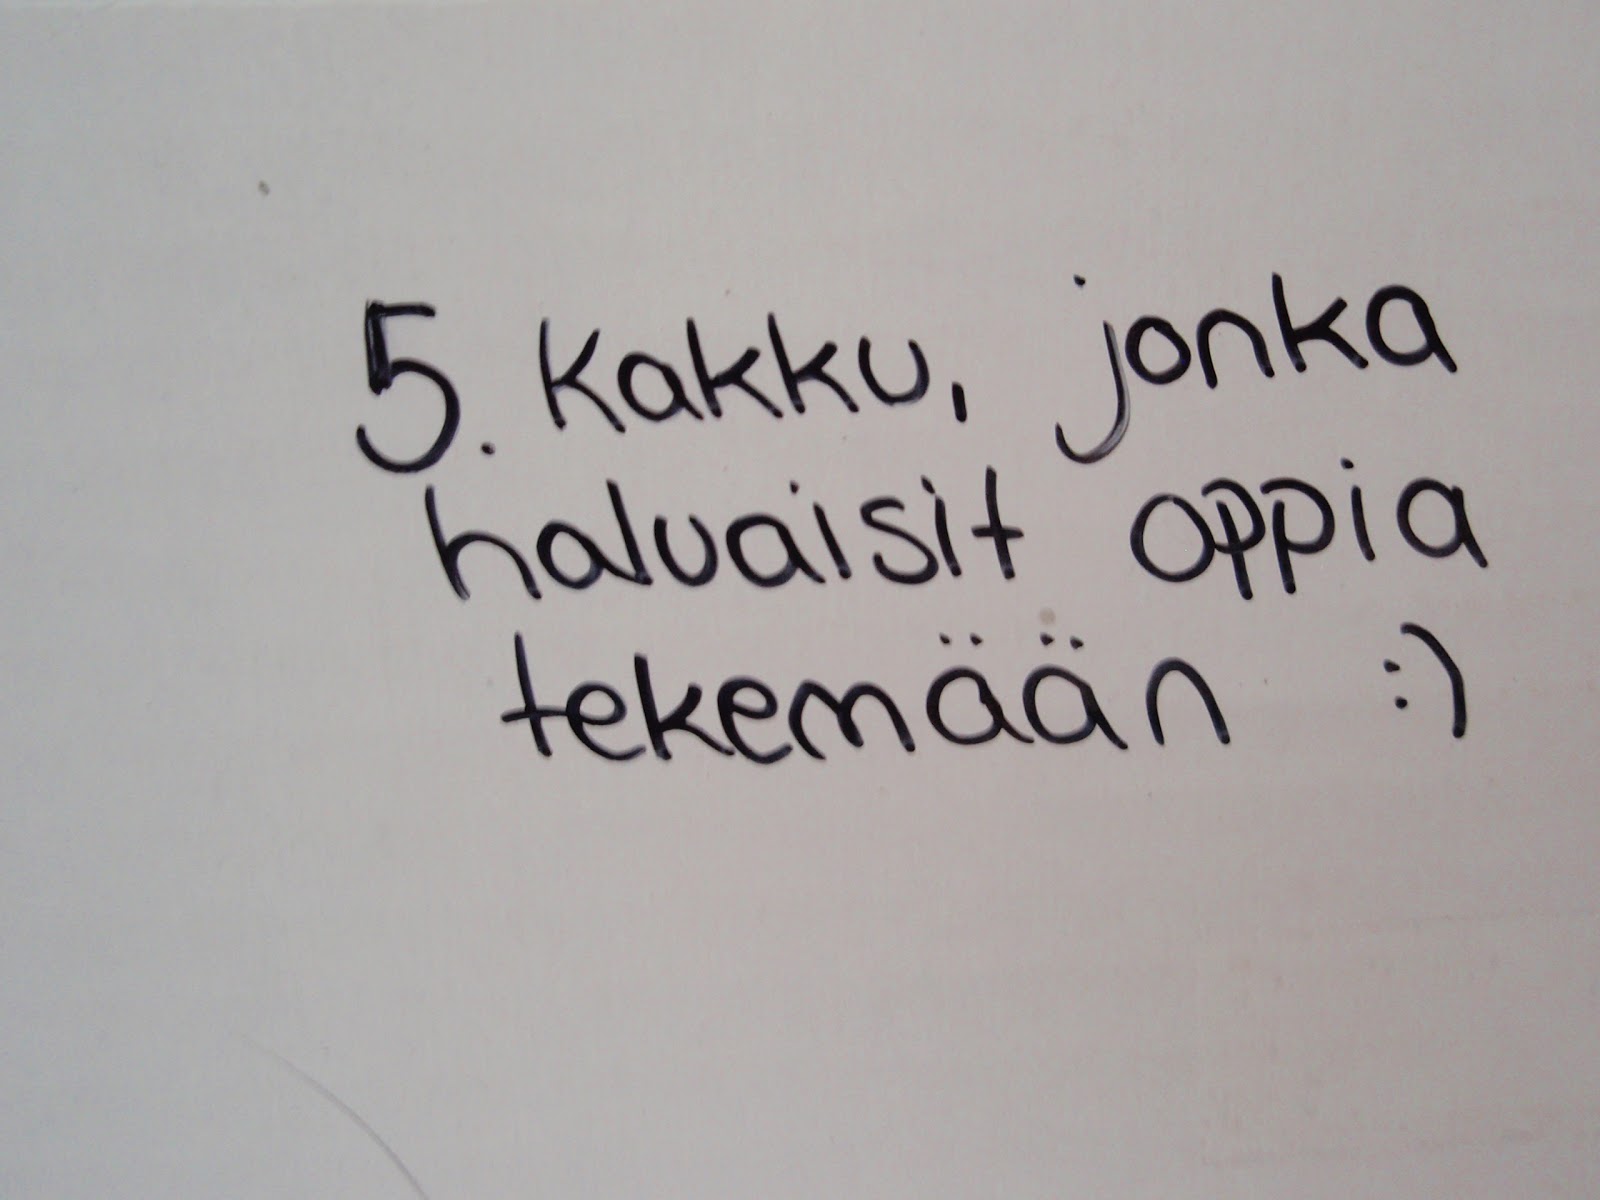 5. Kakku, jonka
haluaisit oppia
tekemään :)